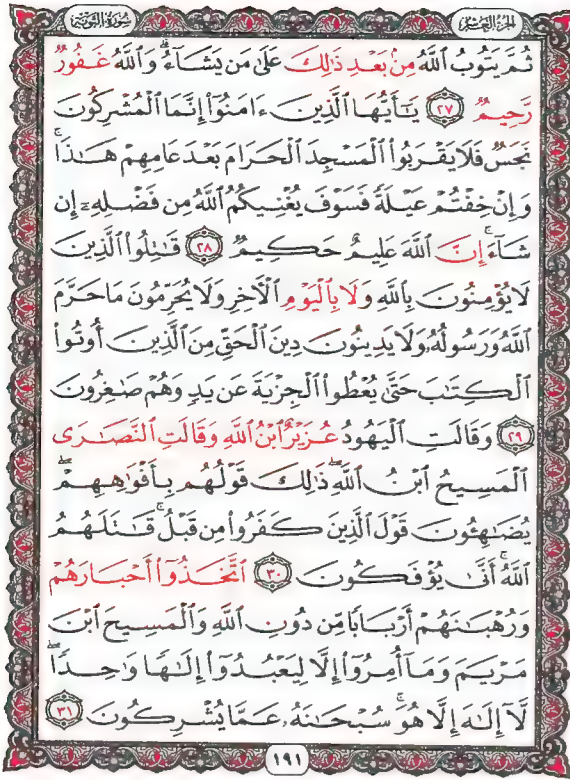 الجزء العاشر
سورة التوبة
ثُمَّ يَتُوبُ ٱللَّهُ مِنۢ بَعْدِ ذَٰلِكَ عَلَىٰ مَن يَشَآءُ ۗ وَٱللَّهُ غَفُورٌ
رَّحِيمٌ ﴿٢٧﴾ يَـٰٓأَيُّهَا ٱلَّذِينَ ءَامَنُوٓا۟ إِنَّمَا ٱلْمُشْرِكُونَ
نَجَسٌ فَلَا يَقْرَبُوا۟ ٱلْمَسْجِدَ ٱلْحَرَامَ بَعْدَ عَامِهِمْ هَـٰذَا ۚ
وَإِنْ خِفْتُمْ عَيْلَةً فَسَوْفَ يُغْنِيكُمُ ٱللَّهُ مِن فَضْلِهِۦٓ إِن
شَآءَ ۚ إِنَّ ٱللَّهَ عَلِيمٌ حَكِيمٌ ﴿٢٨﴾ قَـٰتِلُوا۟ ٱلَّذِينَ
لَا يُؤْمِنُونَ بِٱللَّهِ وَلَا بِٱلْيَوْمِ ٱلْـَٔاخِرِ وَلَا يُحَرِّمُونَ مَا حَرَّمَ
ٱللَّهُ وَرَسُولُهُۥ وَلَا يَدِينُونَ دِينَ ٱلْحَقِّ مِنَ ٱلَّذِينَ أُوتُوا۟
ٱلْكِتَـٰبَ حَتَّىٰ يُعْطُوا۟ ٱلْجِزْيَةَ عَن يَدٍ وَهُمْ صَـٰغِرُونَ
﴿٢٩﴾ وَقَالَتِ ٱلْيَهُودُ عُزَيْرٌ ٱبْنُ ٱللَّهِ وَقَالَتِ ٱلنَّصَـٰرَى
ٱلْمَسِيحُ ٱبْنُ ٱللَّهِ ۖ ذَٰلِكَ قَوْلُهُم بِأَفْوَٰهِهِمْ ۖ
يُضَـٰهِـُٔونَ قَوْلَ ٱلَّذِينَ كَفَرُوا۟ مِن قَبْلُ ۚ قَـٰتَلَهُمُ
ٱللَّهُ ۚ أَنَّىٰ يُؤْفَكُونَ ﴿٣٠﴾ ٱتَّخَذُوٓا۟ أَحْبَارَهُمْ
وَرُهْبَـٰنَهُمْ أَرْبَابًا مِّن دُونِ ٱللَّهِ وَٱلْمَسِيحَ ٱبْنَ
مَرْيَمَ وَمَآ أُمِرُوٓا۟ إِلَّا لِيَعْبُدُوٓا۟ إِلَـٰهًا وَٰحِدًا ۖ
لَّآ إِلَـٰهَ إِلَّا هُوَ ۚ سُبْحَـٰنَهُۥ عَمَّا يُشْرِكُونَ ﴿٣١﴾
١٩١